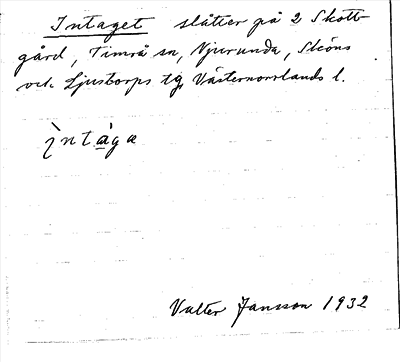 Intaget slåtter på 2 Skott-
gård, Timrå sn, Njurunda, Sköns
och Ljustorps tg, Västernorrlands l.
ìntàga
Valter Jansson 1932